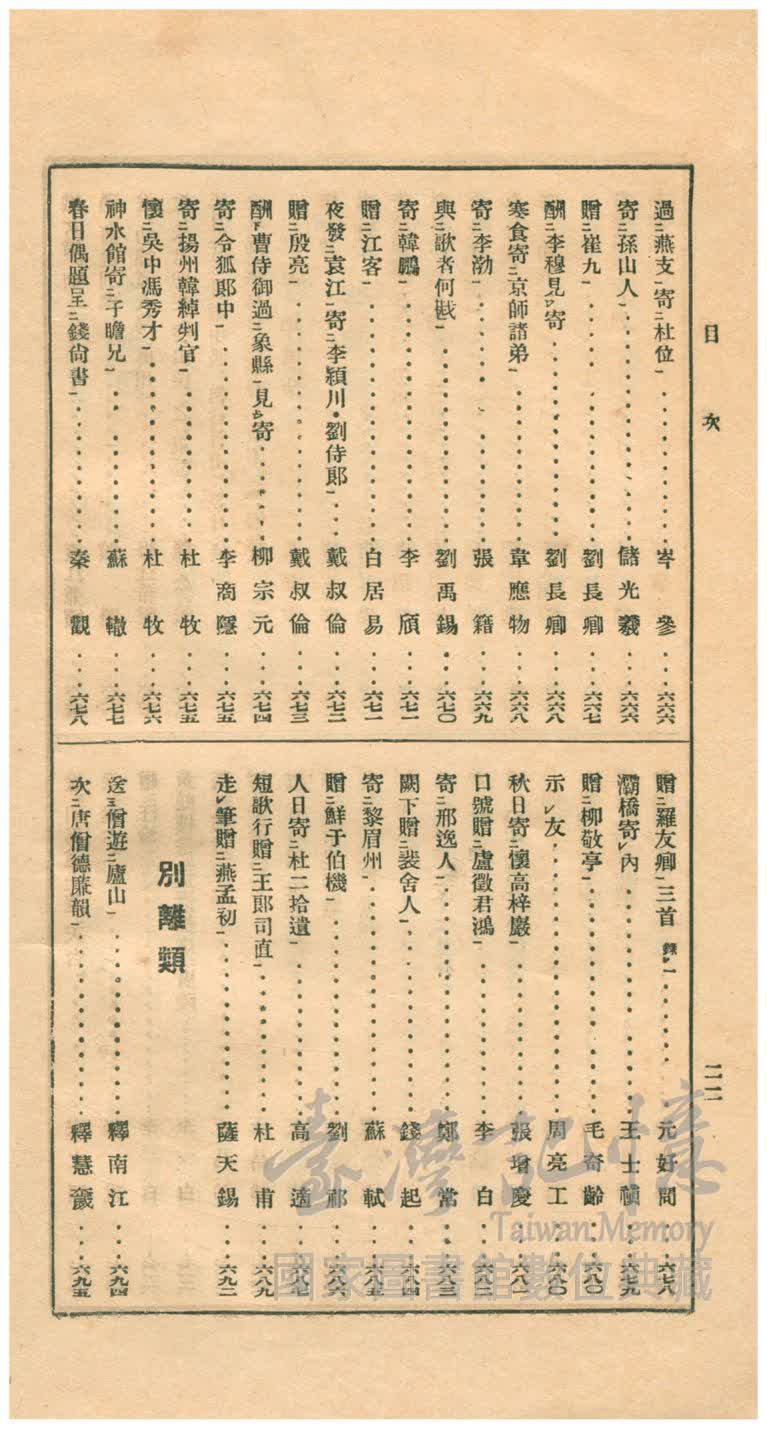 目次
過二燕支一寄二杜位一 岑參 六六六
寄二孫山人一 儲光羲 六六六
贈二崔九一 劉長卿 六六七
酬二李穆見一レ寄 劉長卿 六六八
寒食寄二京師諸弟一 韋應物 六六八
寄二李渤一 張籍 六六九
與二歌者何戡一 劉禹錫 六七〇
寄二韓鵬一 李頎 六七一
贈二江客一 白居易 六七一
夜發二袁江一寄二李穎川・劉侍郎一 戴叔倫 六七二
贈二殷亮一 戴叔倫 六七三
酬下曹侍御過二象縣一見上寄 柳宗元 六七四
寄二令狐郎中一 李商隱 六七五
寄二揚州韓綽判官一 杜牧 六七五
懷二吳中馮秀才一 杜牧 六七六
神水館寄二子瞻兄一 蘇轍 六七七
春日偶題呈二錢尙書一 秦觀 六七八
贈二羅友卿一三首 錄レ一 元好問 六七八
灞橋寄レ內 王士禎 六七九
贈二柳敬亭一 毛奇齡 六八〇
示レ友 周亮工 六八〇
秋日寄二懷高梓巖一 張增慶 六八一
口號贈二盧徵君鴻一 李白 六八二
寄二邢逸人一 鄭常 六八三
闕下贈二裴舍人一 錢起 六八四
寄二黎眉州一 蘇軾 六八五
贈二鮮于伯機一 劉 六八六
人日寄二杜二拾遺一 高適 六八七
短歌行贈二王郎司直一 杜甫 六八九
走レ筆贈二燕孟初一 薩天錫 六九二
別離類
送三僧遊二廬山一 釋南江 六九四
次二唐僧德廉韻一 釋慧 六九五
二二
臺灣記憶
Taiwan Memory
國家圖書館數位典藏